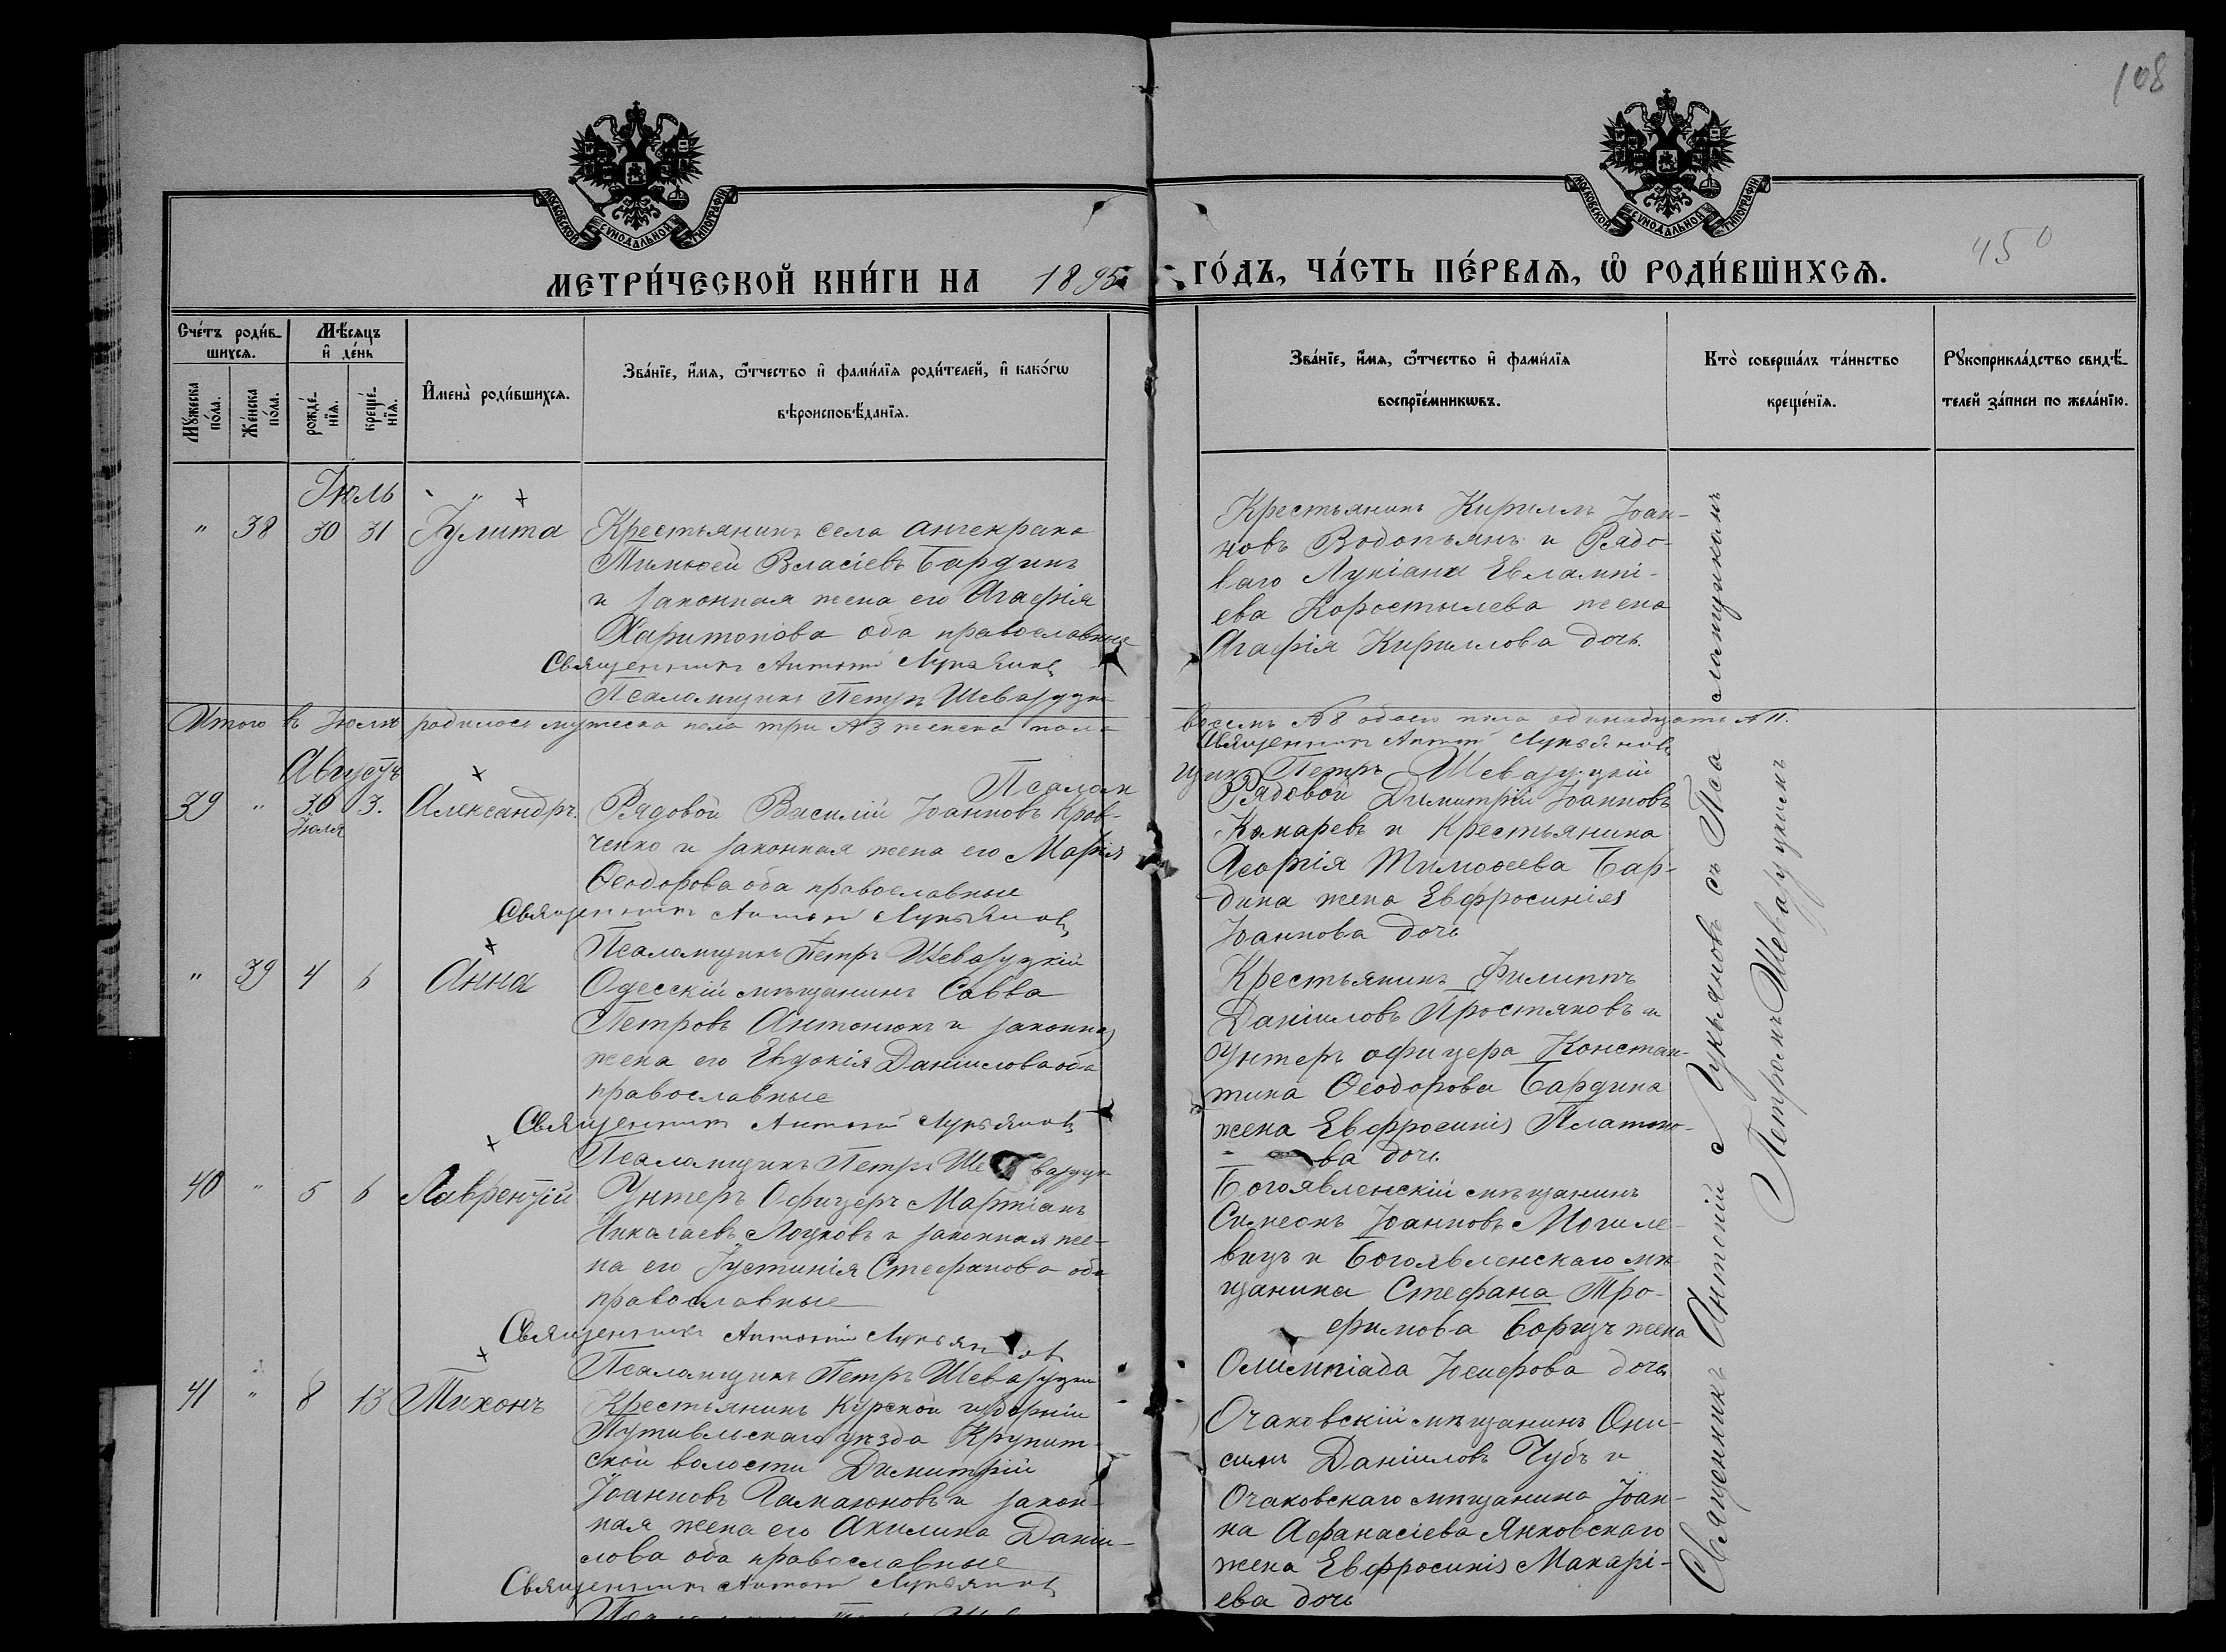 108
МОСКОВСКОЙ СУНОДАЛЬНОЙ ТИПОГРАФІИ
МОСКОВСКОЙ СУНОДАЛЬНОЙ ТИПОГРАФІИ
450
МЕТРИ́ЧЕСКОЙ КНИ́ГИ НА 1895
ГО́ДЪ, ЧА́СТЬ ПЕ́РВАѦ, Ѽ РОДИ́ВШИХСѦ.
Сче́тъ роди́в-
шихсѧ.
Мѣ́сяцъ
и҆ де́нь
Мꙋ́жеска
по́ла.
Же́нска
по́ла.
рожде́-
нїѧ.
креще́-
нїѧ.
И҆мена̀ роди́вшихсѧ.
Зва́нїе, и҆́мѧ, ѻ҆́тчество и҆ фами́лїѧ роди́телей, и҆ како́гѡ
вѣроисповѣ́данїѧ.
Зва́нїе, и҆́мѧ, ѻ҆́тчество и҆ фами́лїѧ
воспрїе́мникѡвъ.
Кто̀ соверша́лъ та́инство
креще́нїѧ.
Рꙋкоприкла́дство свидѣ́-
телей за́писи по жела́нїю.
Іюль
" 38 30 31 Іулита
Крестьянинъ села Анчекрака
Тимоѳей Власіевъ Бардинъ
и законная жена его Агафія
Харитонова оба православные
Священникъ Антоній Лукьяновъ
Псаломщикъ Петръ Шевазуцкі
Крестьянинъ Кириллъ Іоан-
новъ Водопьянъ и Рядо-
ваго Лукіана Евлампі-
ева Коростылева жена
Агафія Кириллова дочь.
Итого въ Іюлѣ родилось мужеска пола три №3 женска пола
восемь №8 обоего пола одинадцать №11.
Священникъ Антоній Лукьяновъ
Псалом
щикъ Петръ Шевазуцкій
Августъ
39 " 30 3. Александръ.
Іюля
Рядовой Василій Іоанновъ Крав-
ченко и законная жена его Марія
Ѳеодорова оба православные
Священникъ Антоній Лукьяновъ
Псаломщикъ Петръ Шевазуцкій
Рядовой Димитрій Іоанновъ
Комаревъ и Крестьянина
Георгія Тимоѳеева Бар-
дина жена Евфросинія
Іоаннова дочь
" 39 4 6 Анна
Одесскій мѣщанинъ Савва
Петровъ Антонюкъ и законная
жена его Евдокія Даніилова оба
православные
Священникъ Антоній Лукьяновъ
Псаломщикъ Петръ Шевазуцк
Крестьянинъ Филиппъ
Даніиловъ Простяковъ и
Унтеръ офицера Констан-
тина Ѳеодорова Бардина
жена Евфросинія Платоно-
ва дочь
40 " 5 6 Лаврентій
Унтеръ Офицеръ Мартіанъ
Николаевъ Лоцковъ и законная же-
на его Іустинія Стефанова оба
православные
Священникъ Антоній Лукьяновъ
Псаломщикъ Петръ Шевазуцкі
Богоявленскій мѣщанинъ
Симеонъ Іоанновъ Могиле-
вицъ и Богоявленскаго мѣ-
щанина Стефана Тро-
фимова Борицъ жена
Олимпіада Іосифова дочь
41 " 8 13 Тихонъ
Крестьянинъ Курской губерніи
Путивльскаго уѣзда Крупит-
ской волости Димитрій
Іоанновъ Гамаюновъ и закон-
ная жена его Акилина Даніи-
лова оба православные
Священникъ Антоній Лукьяновъ
Очаковскій мѣщанинъ Они-
симъ Даніиловъ Чубъ и
Очаковскаго мѣщанина Іоан-
на Афанасіева Янковскаго
жена Евфросинія Макарі-
ева дочь
Священникъ Антоній Лукьяновъ съ Псаломщикомъ
Петромъ Шевазуцкимъ